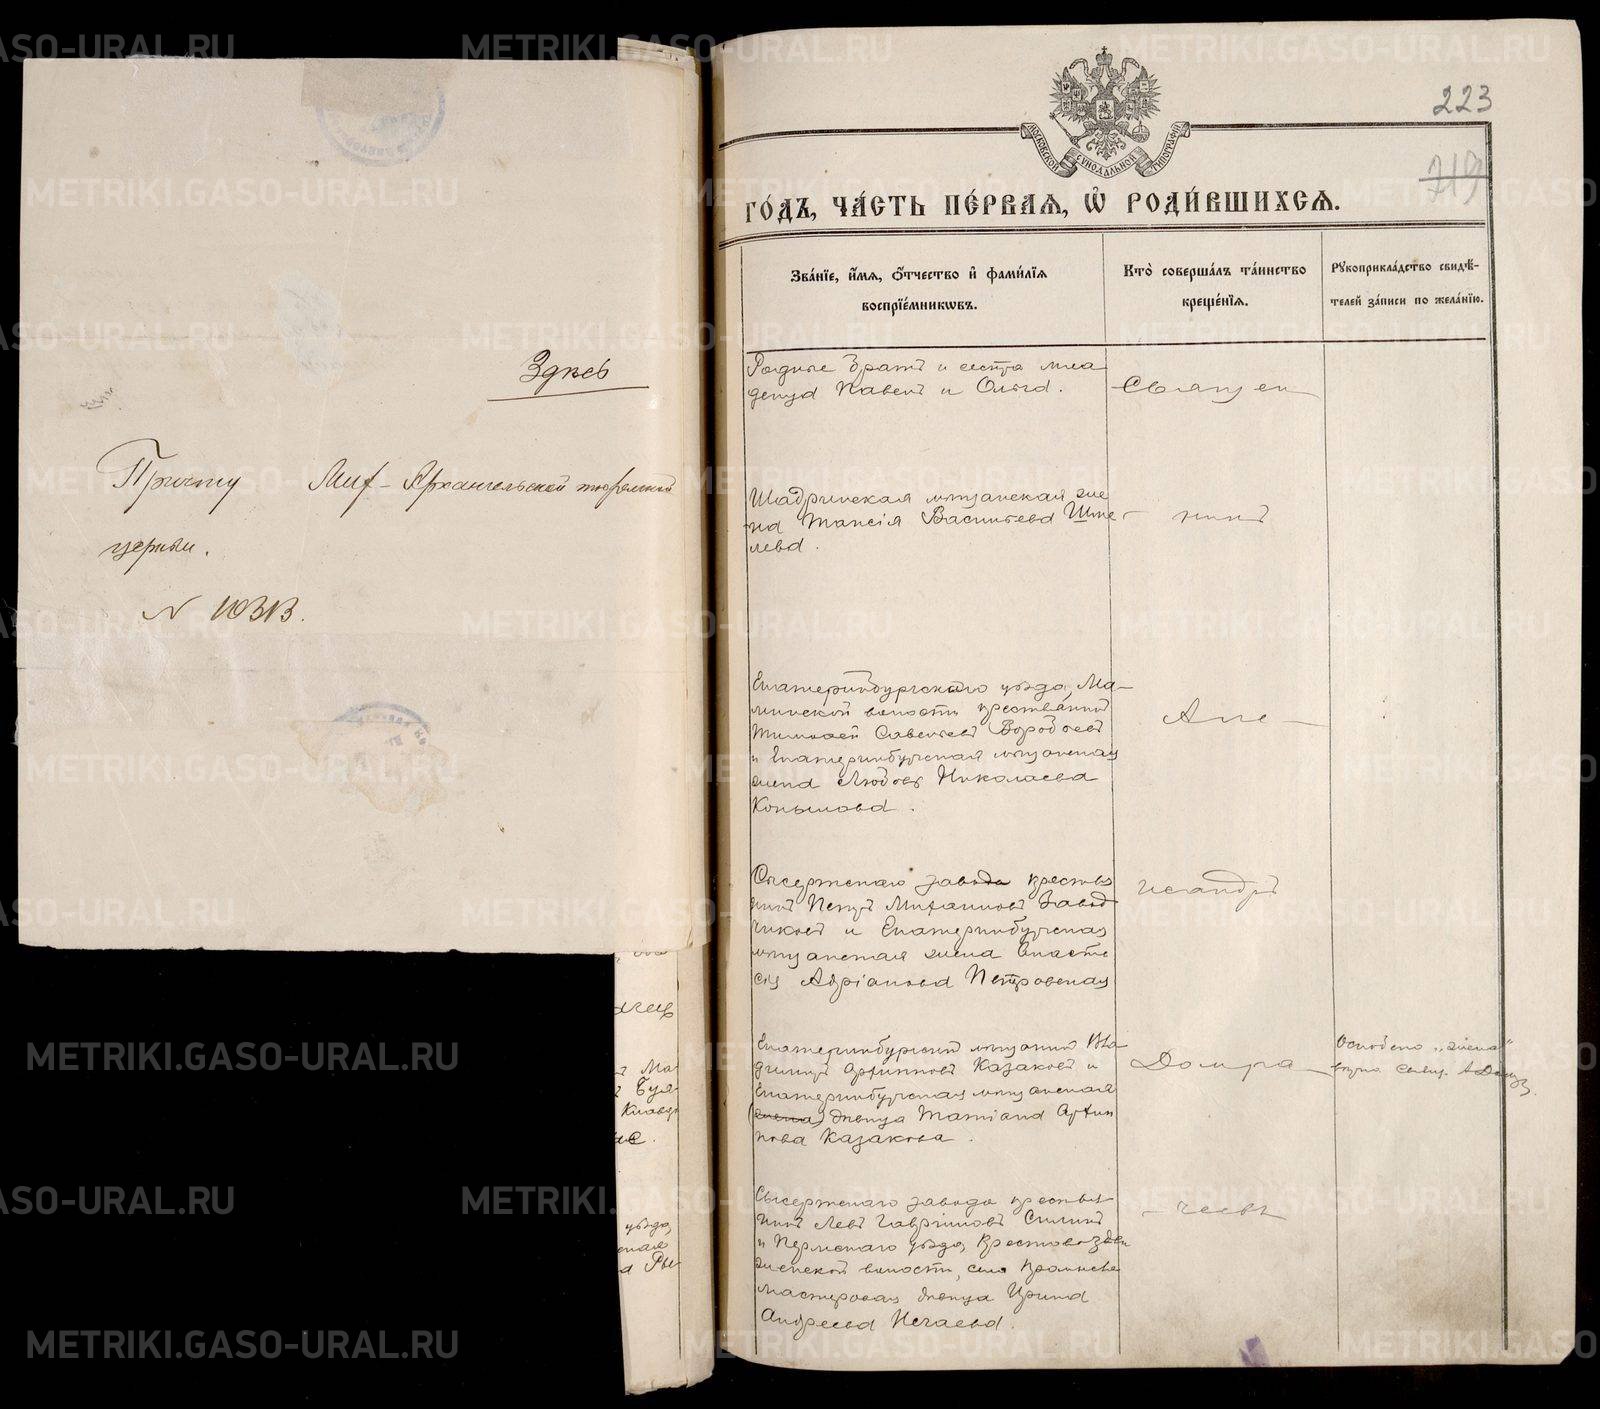 Здѣсь
Причту Мих-Архангельской тюремной
церкви.
N 10313.
223
719
МОСКОВСКОЙ СѴНОДАЛЬНОЙ ТИПОГРАФІИ
ГО́ДЪ, ЧА́СТЬ ПЕ́РВАЯ, Ѡ҆ РОДИ́ВШИХСЯ.
Зва́нїе, и҆́мя, ѻ҆́тчество и҆ фами́лїя
воспрїе́мникѡвъ.
Кто̀ соверша́лъ та́инство
креще́нїя.
Рꙋкоприкла́дство свидѣ́-
телей за́писи по жела́нїю.
Родные братъ и сестра мла
денца Павелъ и Ольга.
Священ
Шадринская мѣщанская же
на Таисія Васильева Шме
лева.
никъ
Екатеринбургскаго уѣзда, Ма-
минской волости крестьянинъ
Тимофей Савельевъ Воробьевъ
и Екатеринбургская мѣщанская
жена Любовь Николаева
Копылова.
Але
Сысертскаго завода крестья
нинъ Петръ Михаиловъ Завод
чиковъ и Екатеринбургская
мѣщанская жена Анаста
сія Адріанова Петровская
ксандръ
Екатеринбургскій мѣщанинъ Вла
димиръ Архиповъ Казаковъ и
Екатеринбургская мѣщанская
(жена) дѣвица Татіана Архи
пова Казакова.
Домра
"жена"
Сысертскаго завода крестья
нинъ Левъ Гавріиловъ Силинъ
и Пермскаго уѣзда, Крестовоздви
женской волости, села
мастеровая дѣвица Ирина
Андреева Нечаева.
чеевъ